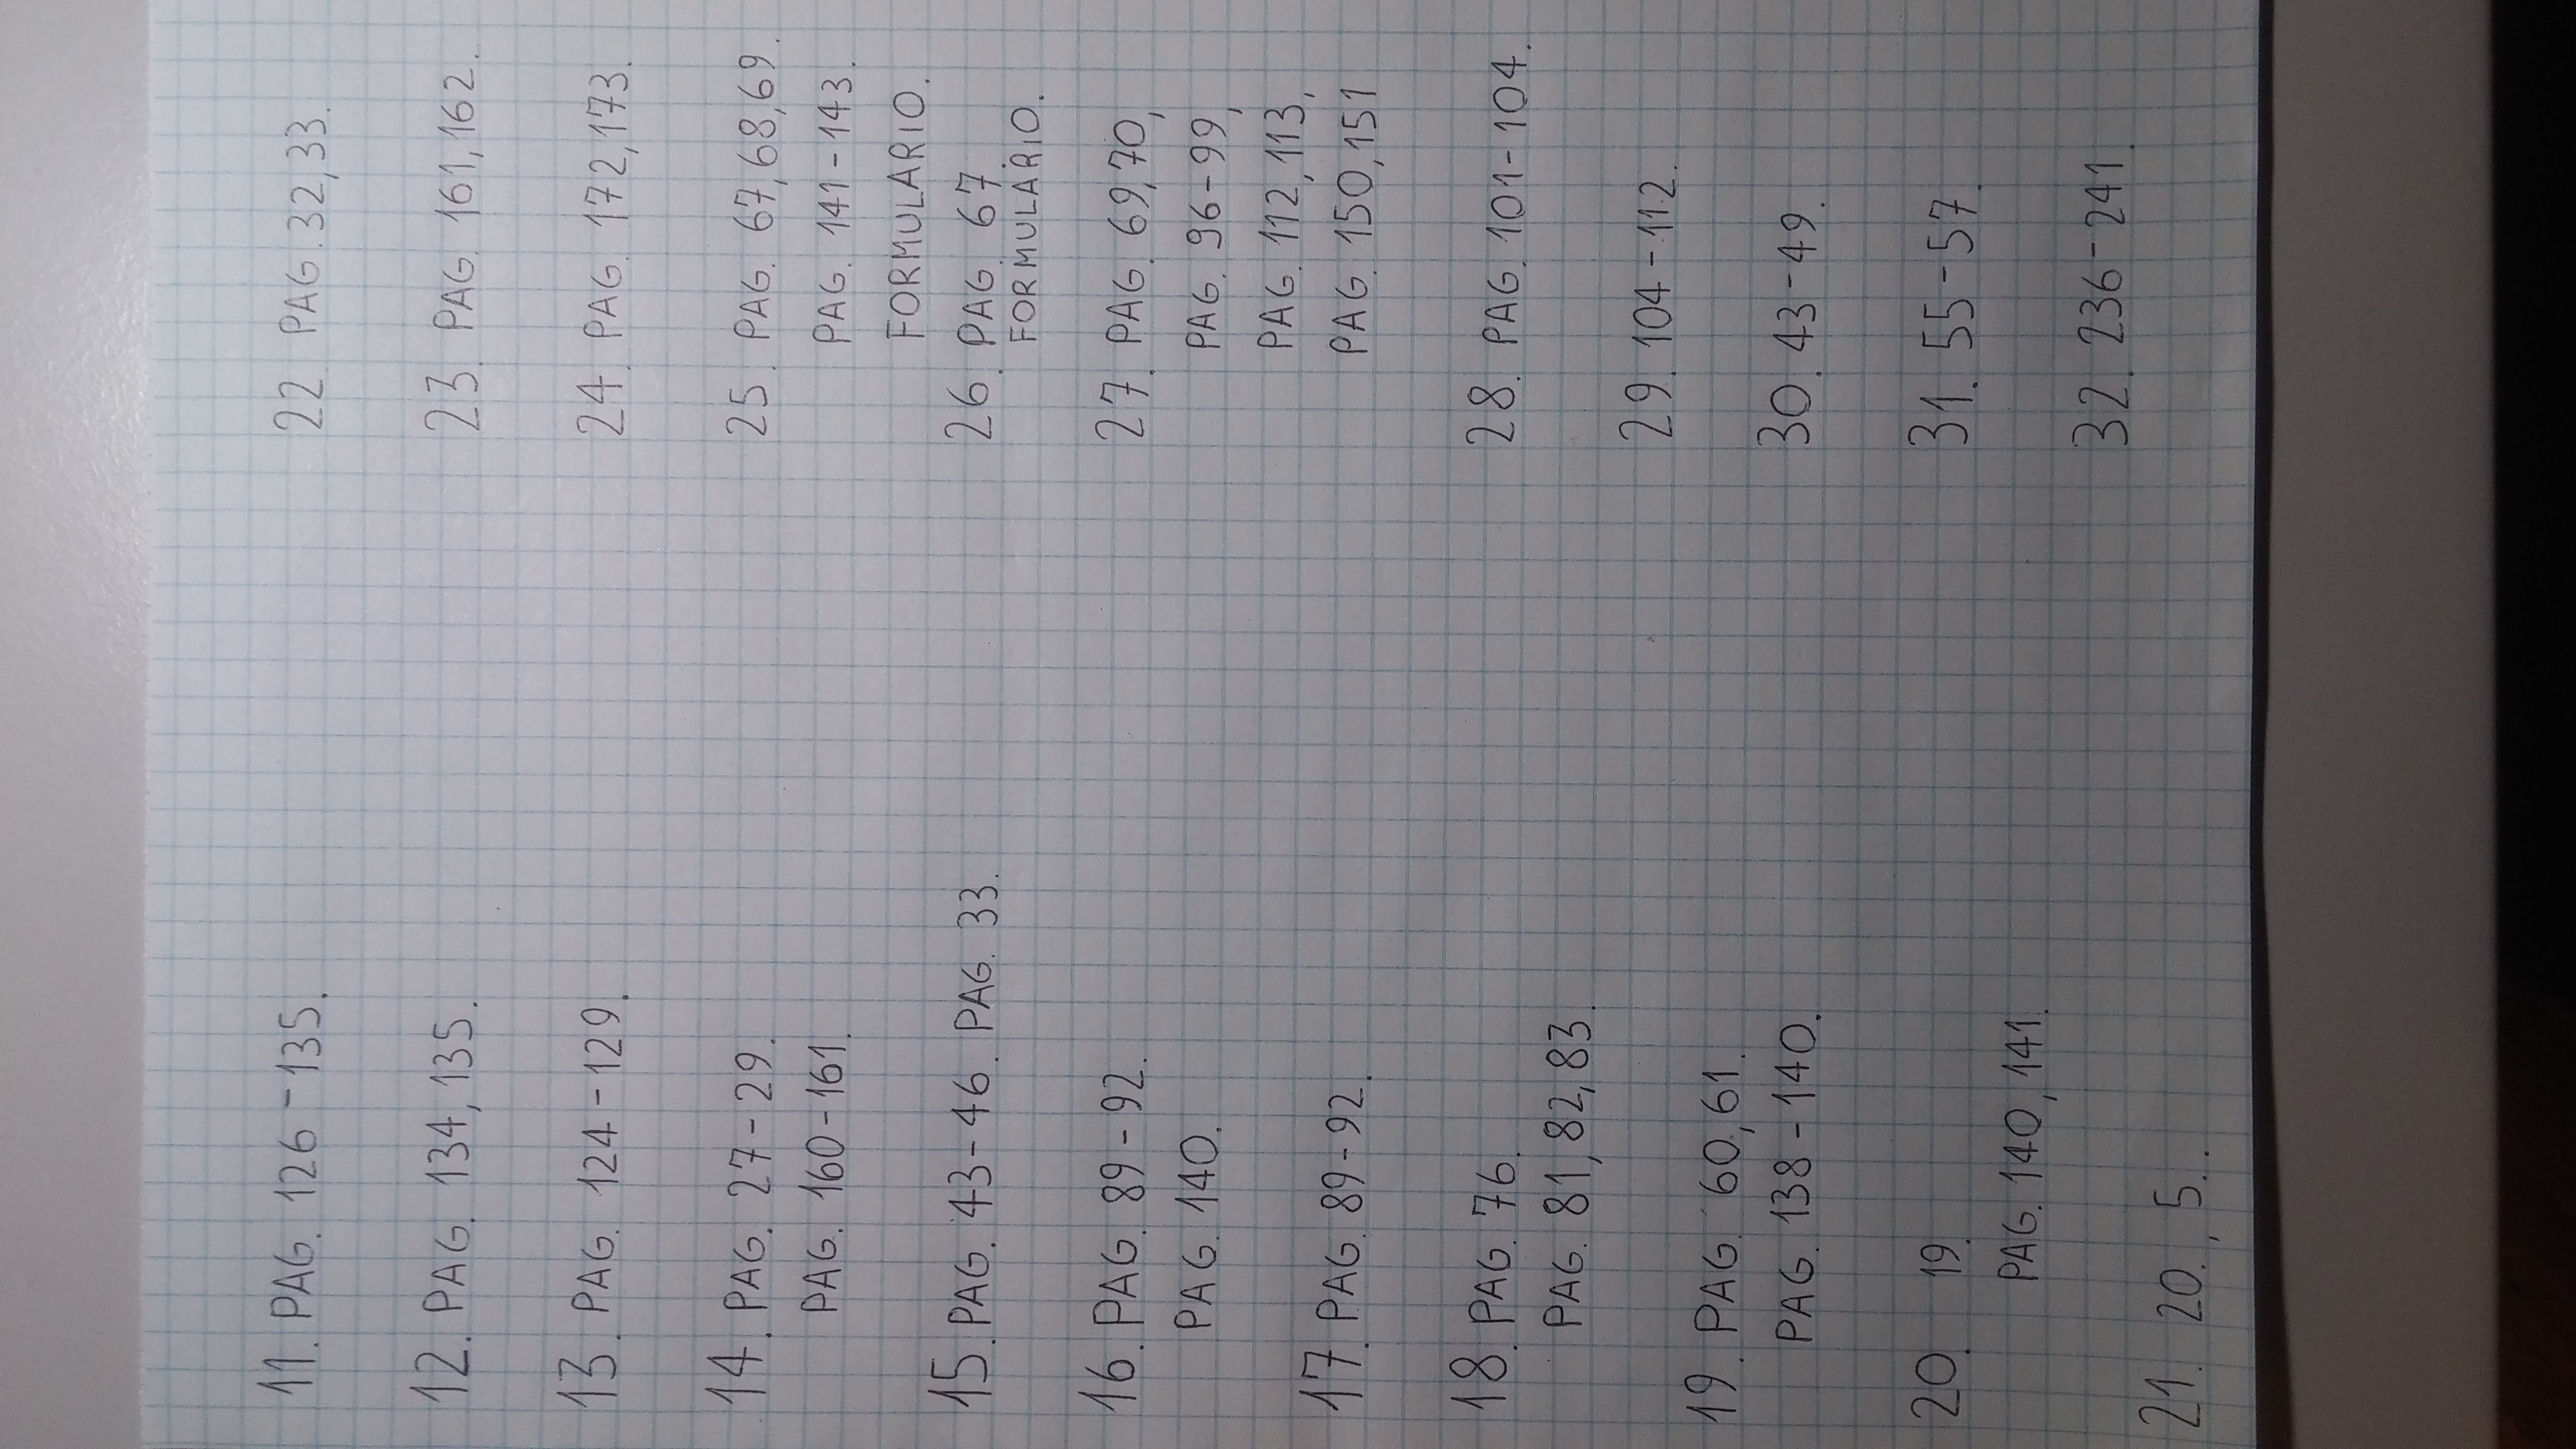 11. PAG. 126-135.
12. PAG. 134, 135.
13. PAG. 124-129.
14. PAG. 27-29.
PAG. 160-161.
15. PAG. 43-46. PAG. 33.
16. PAG. 89-92.
PAG. 140.
17. PAG. 89-92.
18. PAG. 76.
PAG. 81, 82, 83.
19. PAG. 60, 61.
PAG. 138-140.
20. 19.
PAG. 140, 141.
21. 20., 5..
22. PAG. 32, 33.
23. PAG. 161, 162.
24. PAG. 172, 173.
25. PAG. 67, 68, 69.
PAG. 141-143.
FORMULARIO.
26. PAG. 67.
FORMULARIO.
27. PAG. 69, 70,
PAG. 96-99,
PAG. 112, 113,
PAG. 150, 151
28. PAG. 101-104.
29. 104-112.
30. 43-49.
31. 55-57.
32. 236-241.